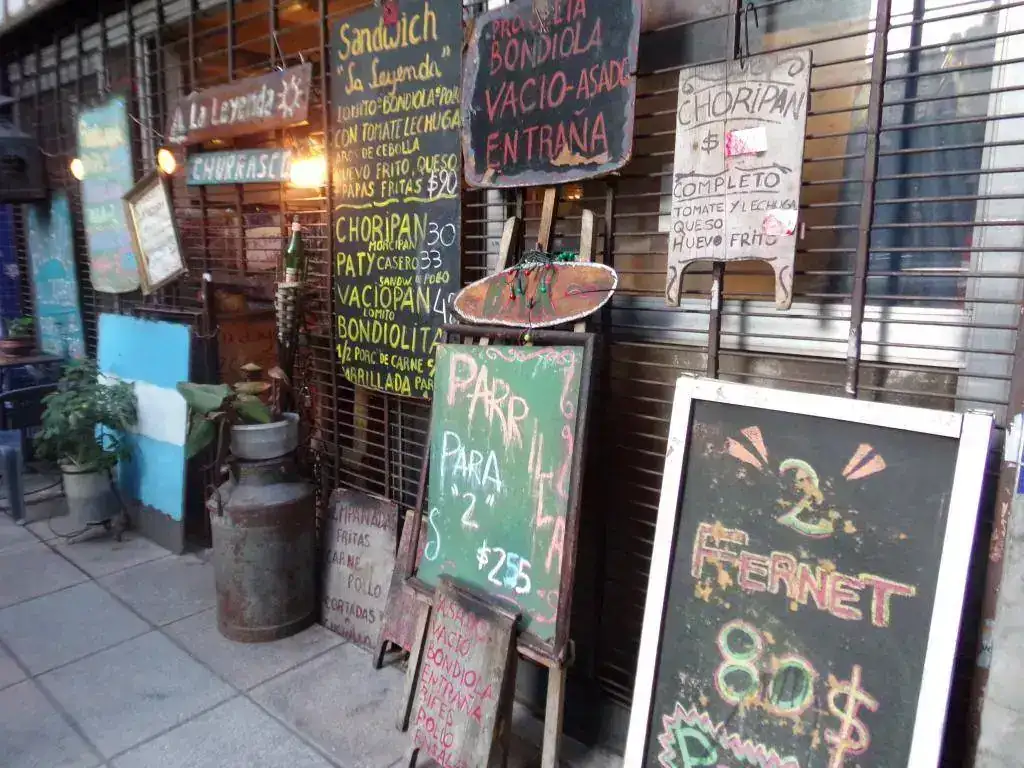 La Leyenda
CHURRASC
Sandwich
"La Leyenda"
LOMITO "BONDIOLA" POLL
CON TOMATE LECHUGA
AROS DE CEBOLLA
HUEVO FRITO, QUESO
PAPAS FRITAS $90
CHORIPAN 30
MORCIPAN
PATY CASERO 33
VACIOPAN
LOMITO
BONDIOLITA
1/2 PORC DE CARNE
PARRILLADA PAR
BONDIOLA
VACIO-ASADO
ENTRAÑA
CHORIPAN
$
COMPLETO
TOMATE Y LECHUGA
QUESO
HUEVO FRITO
PARRILLA
PARA
"2"
$255
EMPANADA
FRITAS
CARNE
POLLO
CORTADAS
ASADO
VACIO
BONDIOLA
ENTRAÑA
POLLO
2
FERNET
80$